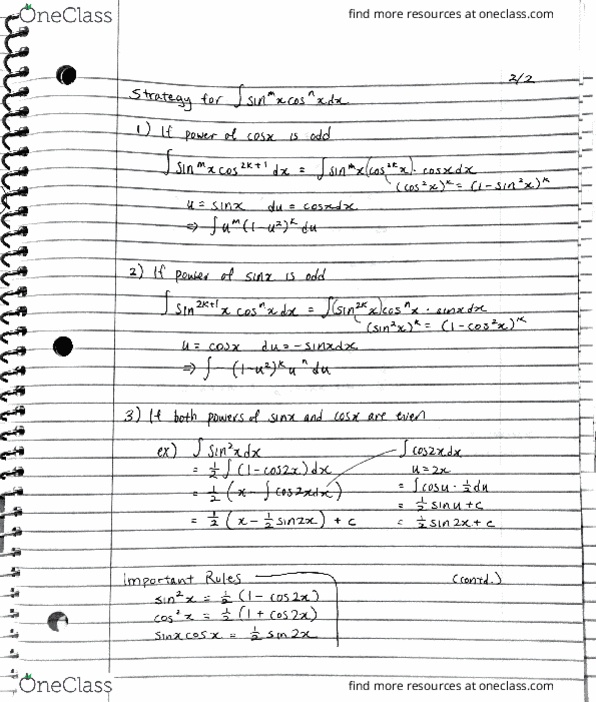 OneClass
find more resources at oneclass.com
2/2
Strategy for ∫ sin^m x cos^n x dx
1) If power of cosx is odd
∫ sin^m x cos^(2k+1) dx = ∫ sin^m x (cos^(2k) x) · cosx dx
(cos²x)^k = (1 - sin²x)^k
u = sinx du = cosxdx
⇒ ∫ u^m (1-u²)^k du
2) If power of sinx is odd
∫ sin^(2k+1) x cos^n x dx = ∫ (sin^(2k) x) cos^n x · sinx dx
(sin²x)^k = (1-cos²x)^k
u = cosx du = -sinxdx
⇒ ∫ - (1-u²)^k u^n du
3) If both powers of sinx and cosx are even
ex) ∫ sin²x dx
= ½ ∫ (1-cos2x) dx
= ½ (x - ∫ cos2xdx)
= ½ (x - ½ sin2x) + c
∫ cos2x dx
u = 2x
= ∫ cosu · ½ du
= ½ sinu + c
= ½ sin2x + c
Important Rules
sin²x = ½ (1 - cos2x)
cos²x = ½ (1 + cos2x)
sinxcosx = ½ sin2x
(contd.)
OneClass
find more resources at oneclass.com